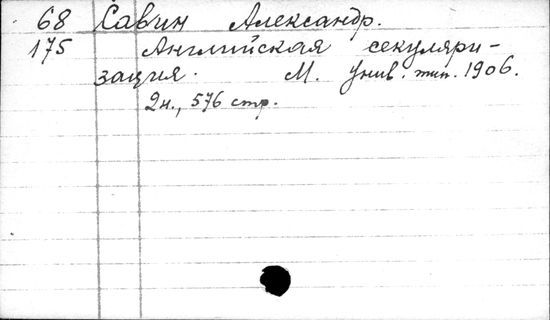 68 Савин Александр.
175 Английская секуляри-
зация. М. Унив. тип. 1906.
2н., 576 стр.